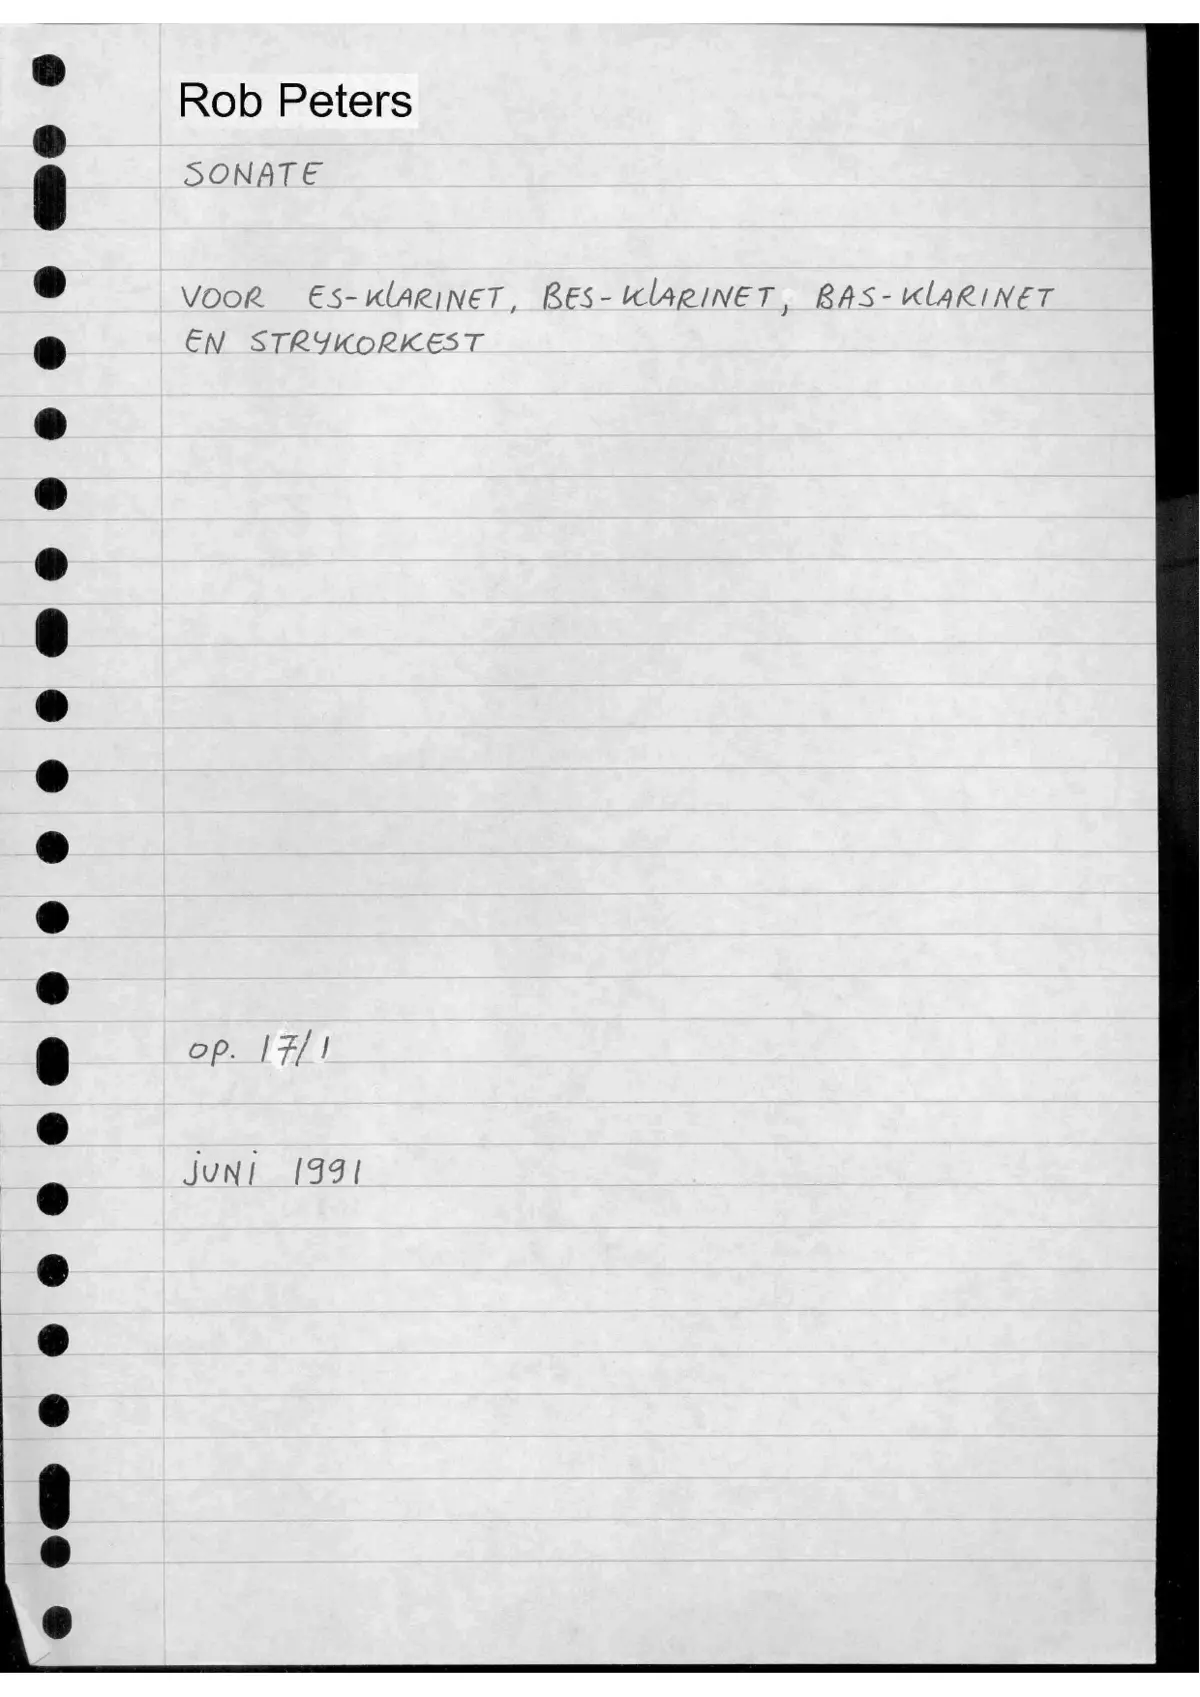 Rob Peters
SONATE
VOOR ES-KLARINET, BES-KLARINET, BAS-KLARINET
EN STRYKORKEST
op. 17/1
juni 1991